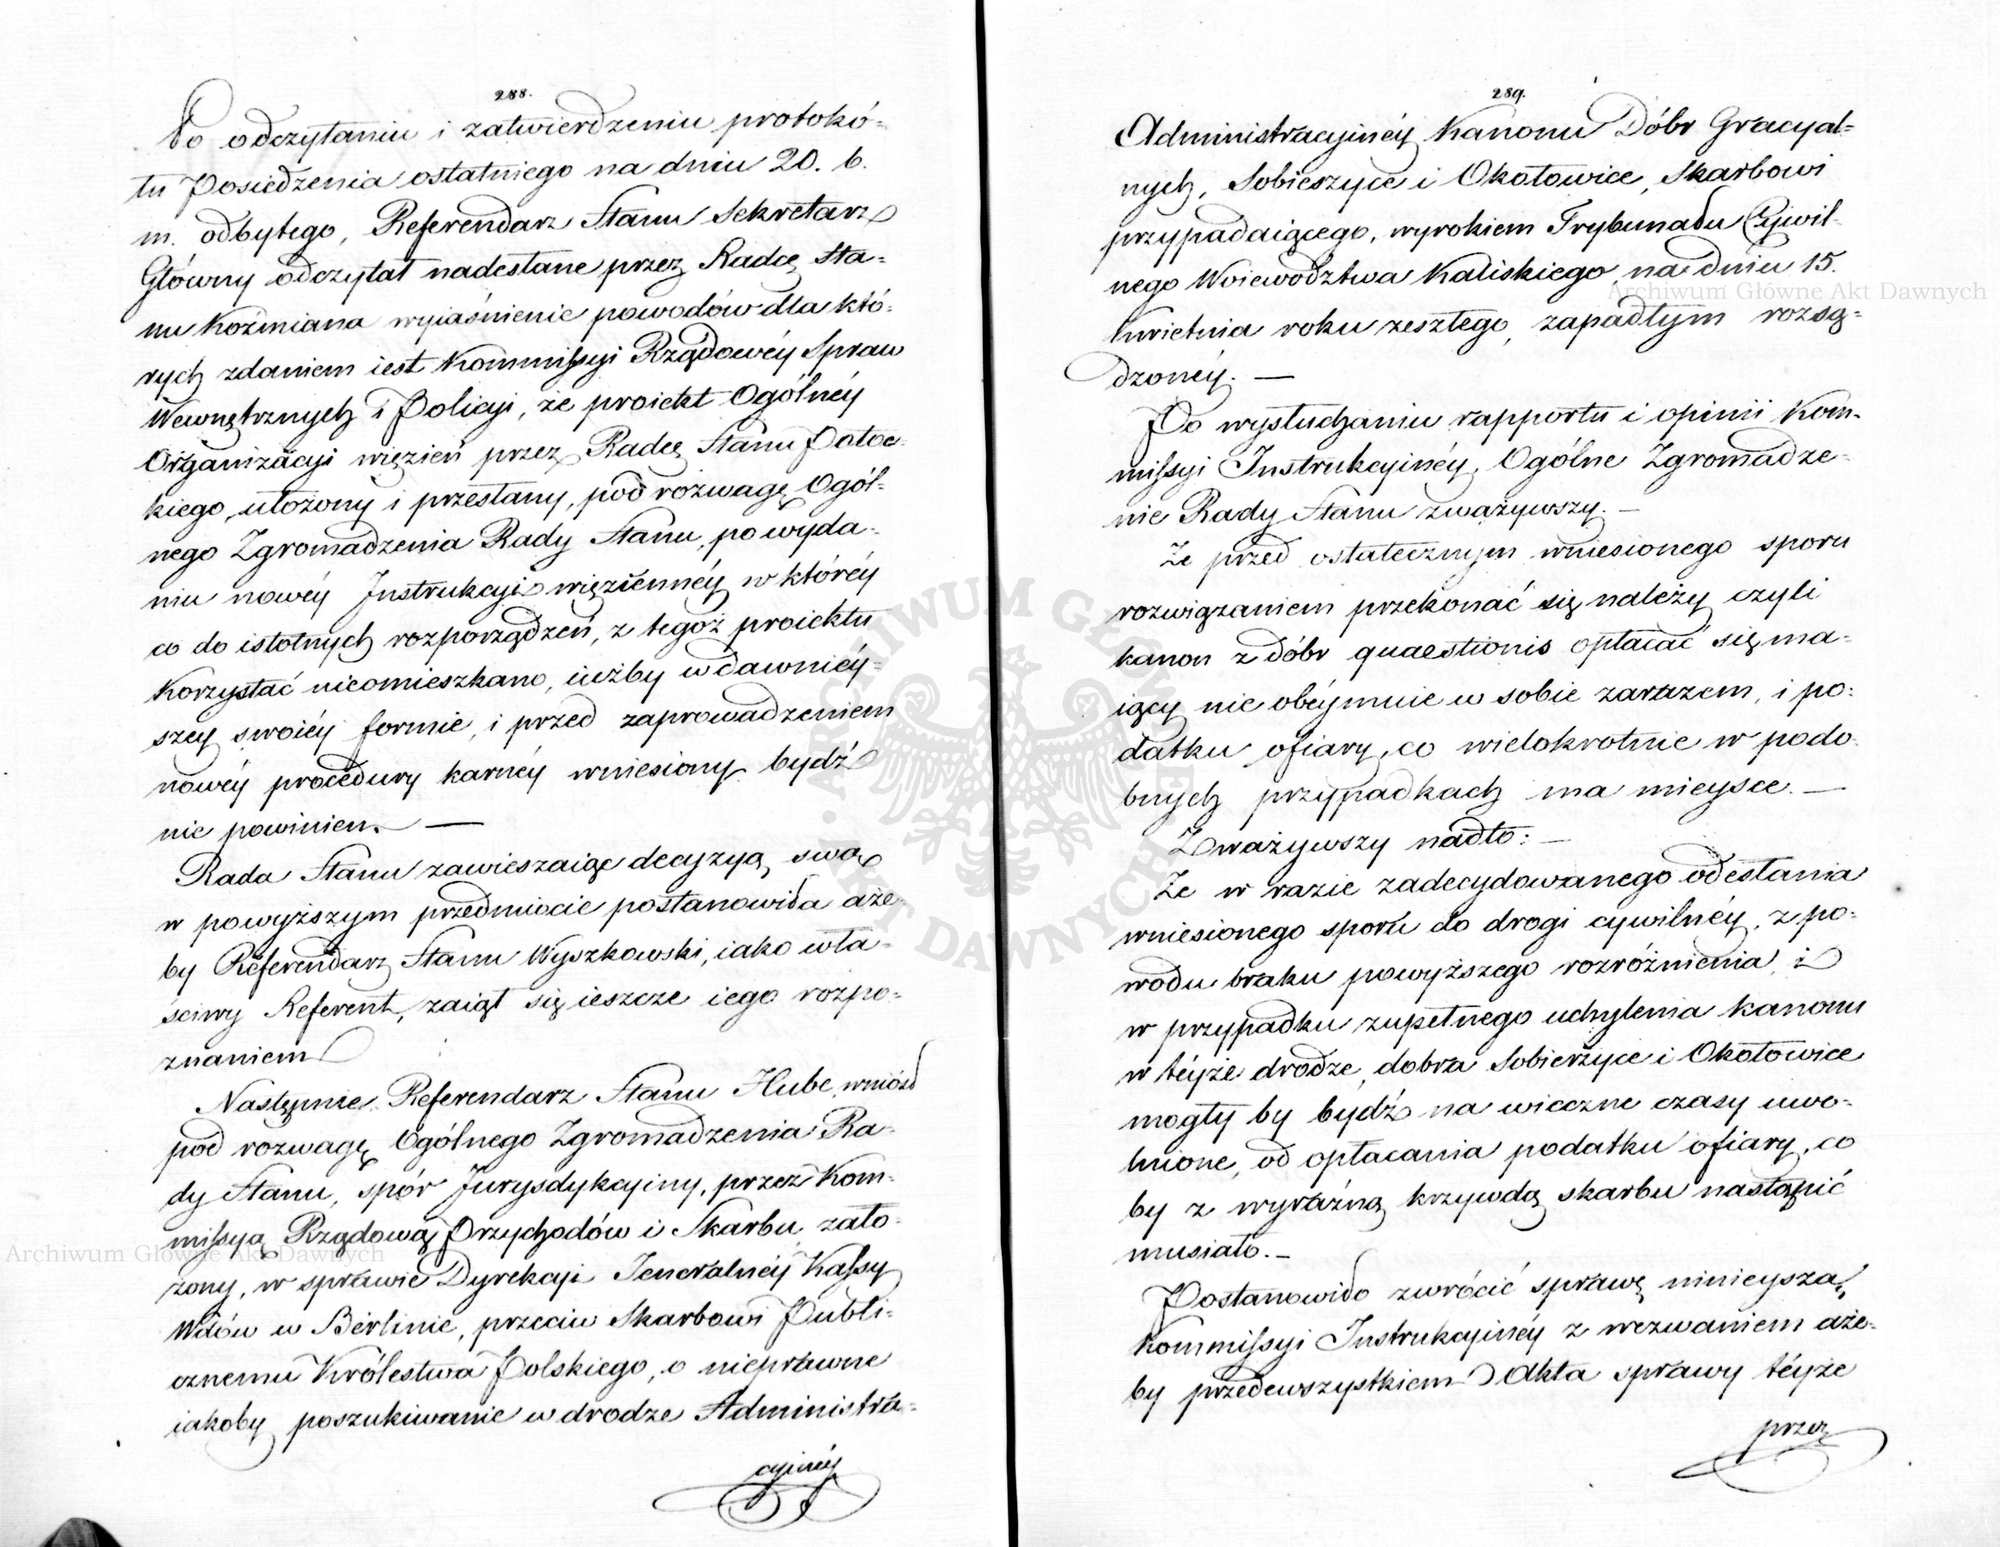 288.
Po odczytaniu i zatwierdzeniu protokó-
łu Posiedzenia ostatniego na dniu 20. b.
m. odbytego, Referendarz Stanu Sekretarz
Główny odczytał nadesłane przez Radcę Sta-
nu Koźmiana wyiaśnienie powodów dla któ-
rych zdaniem iest Kommissyi Rządowéy Spraw
Wewnętrznych i Policyi, że proiekt Ogólnéy
Organizacyi więzień przez Radcę Stanu Potoc-
kiego, ułożony i przesłany, pod rozwagę Ogól-
nego Zgromadzenia Rady Stanu, po wyda-
niu nowéy Instrukcyi więziennéy w któréy
co do istotnych rozporządzeń, z tegoż proiektu
korzystać nieomieszkano, iużby w dawniéy-
szey swoiéy formie, i przed zaprowadzeniem
nowéy procedury karnéy wniesiony bydź
nie powinien. —
Rada Stanu zawieszaiąc decyzyą swą
w powyższym przedmiocie postanowiła aże-
by Referendarz Stanu Wyszkowski, iako wła-
ściwy Referent, zaiął się ieszcze iego rozpo-
znaniem
Następnie Referendarz Stanu Hube, wniósł
pod rozwagę Ogólnego Zgromadzenia Ra-
dy Stanu, spór Jurysdykcyiny, przez Kom-
missyą Rządową Przychodów i Skarbu, zało-
żony, w sprawie Dyrekcyi Jeneralnéy Kassy
Wdów w Berlinie, przeciw Skarbowi Publi-
cznemu Królestwa Polskiego, o nieprawne
iakoby poszukiwanie w drodze Administra-
cyinéy
289.
Administracyinéy Kanonu Dóbr Gracyal-
nych, Sobieszyce i Okołowice, Skarbowi
przypadaiącego, wyrokiem Trybunału Cywil-
nego Woiewództwa Kaliskiego, na dniu 15.
kwietnia roku zeszłego, zapadłym rozsą-
dzonéy. —
Po wysłuchaniu rapportu i opinii Kom-
missyi Instrukcyinéy, Ogólne Zgromadze-
nie Rady Stanu zważywszy. —
Że przed ostatecznym wniesionego sporu
rozwiązaniem przekonać się należy czyli
kanon z dóbr quaestionis opłacać się ma-
iący nie obéymuie w sobie zarazem, i po-
datku ofiary, co wielokrotnie w podo-
bnych przypadkach ma mieysce. —
Zważywszy nadto: —
Że w razie zadecydowanego odesłania
wniesionego sporu do drogi cywilnéy, z po-
wodu braku powyższego rozróżnienia i
w przypadku zupełnego uchylenia kanonu
w téyże drodze, dobra Sobierżyce i Okołowice
mogły by bydź na wieczne czasy uwo-
lnione, od opłacania podatku ofiary, co
by z wyraźną krzywdą skarbu nastąpić
musiało. —
Postanowiło zwrócić sprawę ninieyszą
Kommissyi Instrukcyinéy z wezwaniem aże-
by przedewszystkiem Akta sprawy téyże
przez
Archiwum Główne Akt Dawnych
Archiwum Główne Akt Dawnych
ARCHIWUM GŁÓWNE AKT DAWNYCH